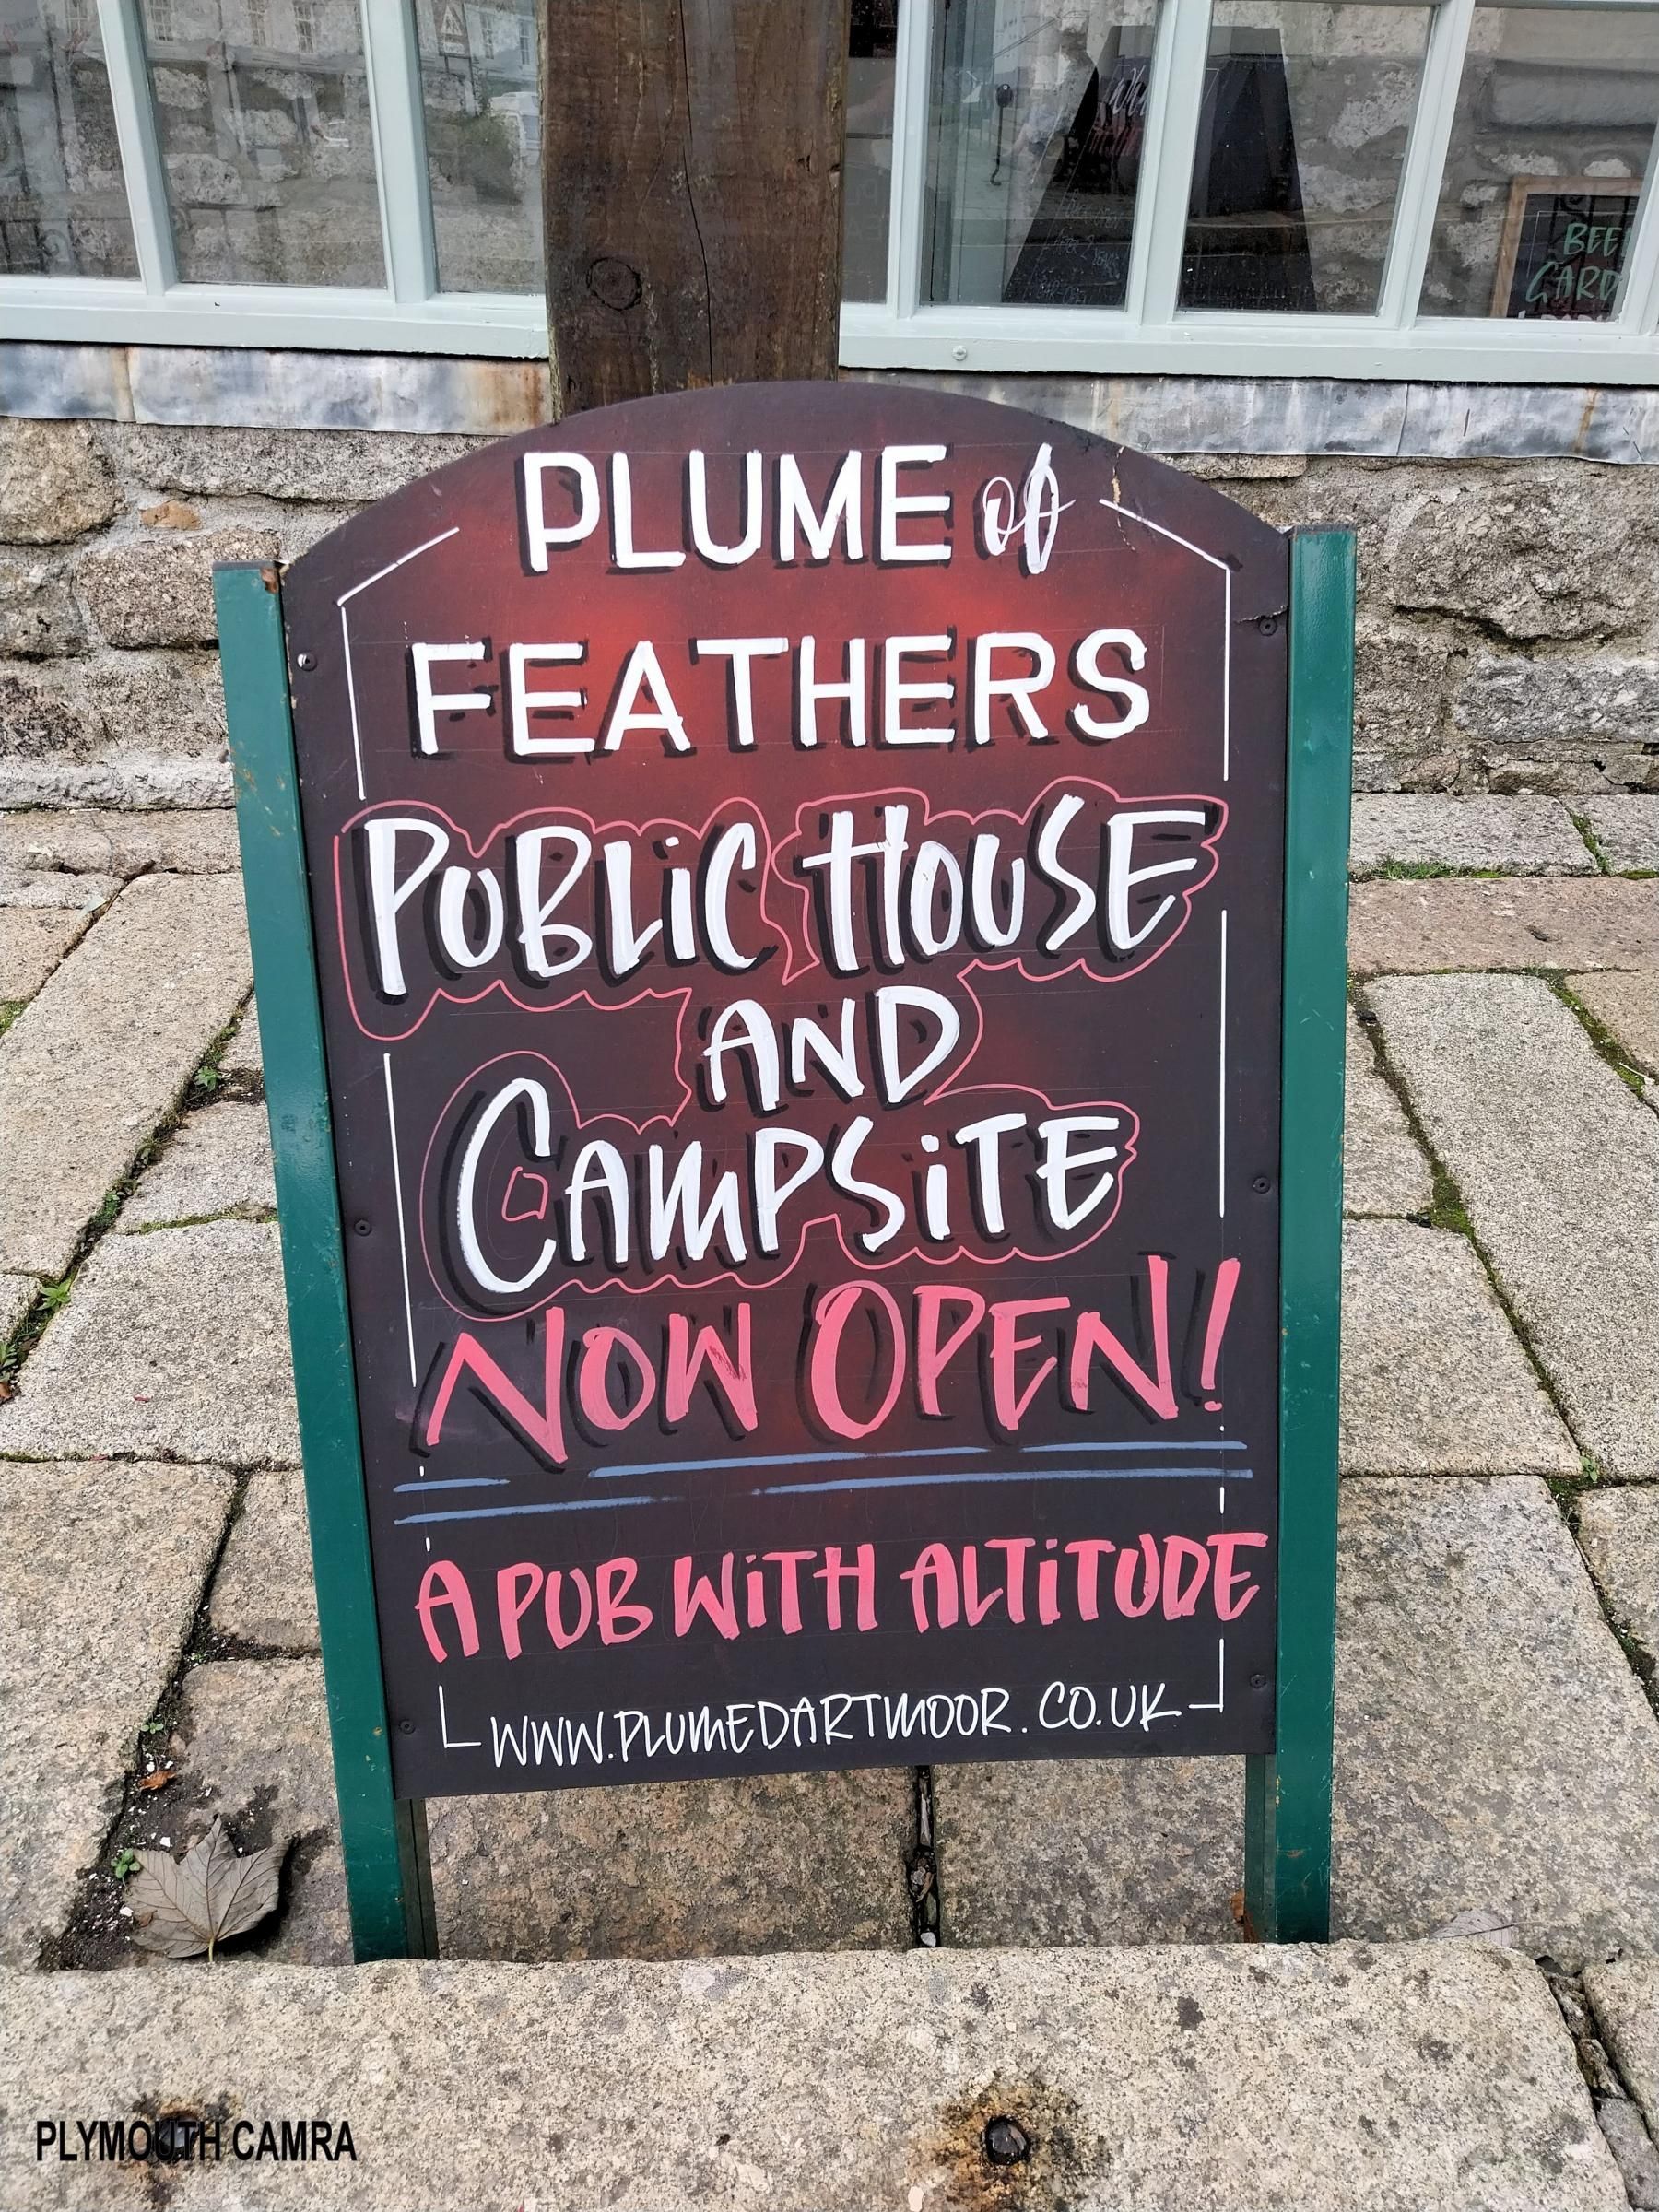 BEE
GARD
PLUME of
FEATHERS
PUBLiC HOUSE
AND
CAMPSiTE
NOW OPEN!
A PUB WiTH ALTiTUDE
WWW.PLUMEDARTMOOR.CO.UK
PLYMOUTH CAMRA